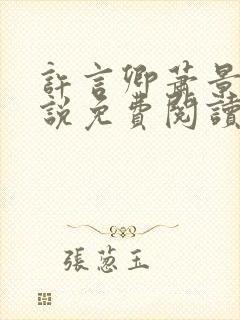 許言卿蕭景
說免費閱讀
張蔥玉